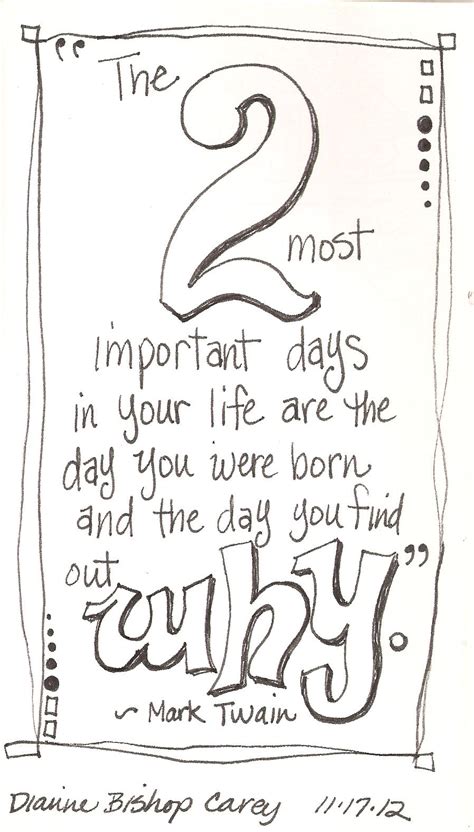 "The
2
most
important days
in your life are the
day you were born
and the day you find
out why."
~ Mark Twain
Dianne Bishop Carey 11.17.12